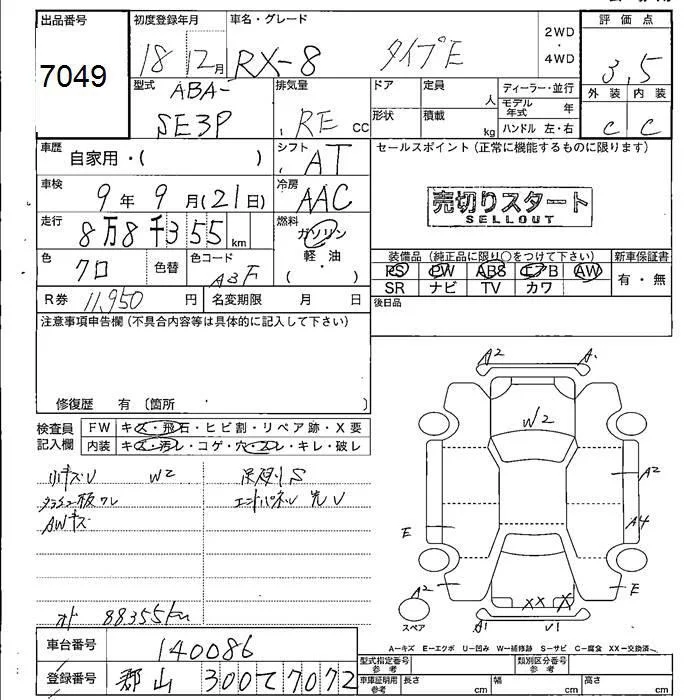 出品番号 初度登録年月 車名・グレード 2WD・4WD 評価点
7049 18 12月 RX-8 タイプE 3.5
型式 ABA-SE3P 排気量 RE cc ドア 定員 人 ディーラー・並行 外装 内装
形状 積載 kg モデル年式 年 C C
ハンドル 左・右
車歴 自家用・( ) シフト AT セールスポイント (正常に機能するものに限ります)
車検 9年9月(21日) 冷房 AAC
売切りスタート
SELLOUT
走行 8万8千355km 燃料 ガソリン
軽・油
( )
色 クロ 色替 色コード A3F
装備品 (純正品に限り〇をつけて下さい) 新車保証書
PS PW ABS エアB AW 有・無
SR ナビ TV カワ
R券 11,950円 名変期限 月 日 後日品
注意事項申告欄 (不具合内容等は具体的に記入して下さい)
修復歴 有 〔箇所 〕
検査員記入欄 FW キズ・飛石・ヒビ割・リペア跡・X要
内装 キズ・汚レ・コゲ・穴・スレ・キレ・破レ
W2
S
エンドパネル
AWキズ
88355km
A2 A
W2
A2
A4
E
E
A2
XX X
A1 V1
スペア
A-キズ E-エクボ U-凹み W-補修跡 S-サビ C-腐食 XX-交換済
車台番号 140086
登録番号 郡山 300 て 7072
型式指定番号 参考 類別区分番号 参考
車庫証明用 参考 長さ cm 幅 cm 高さ cm